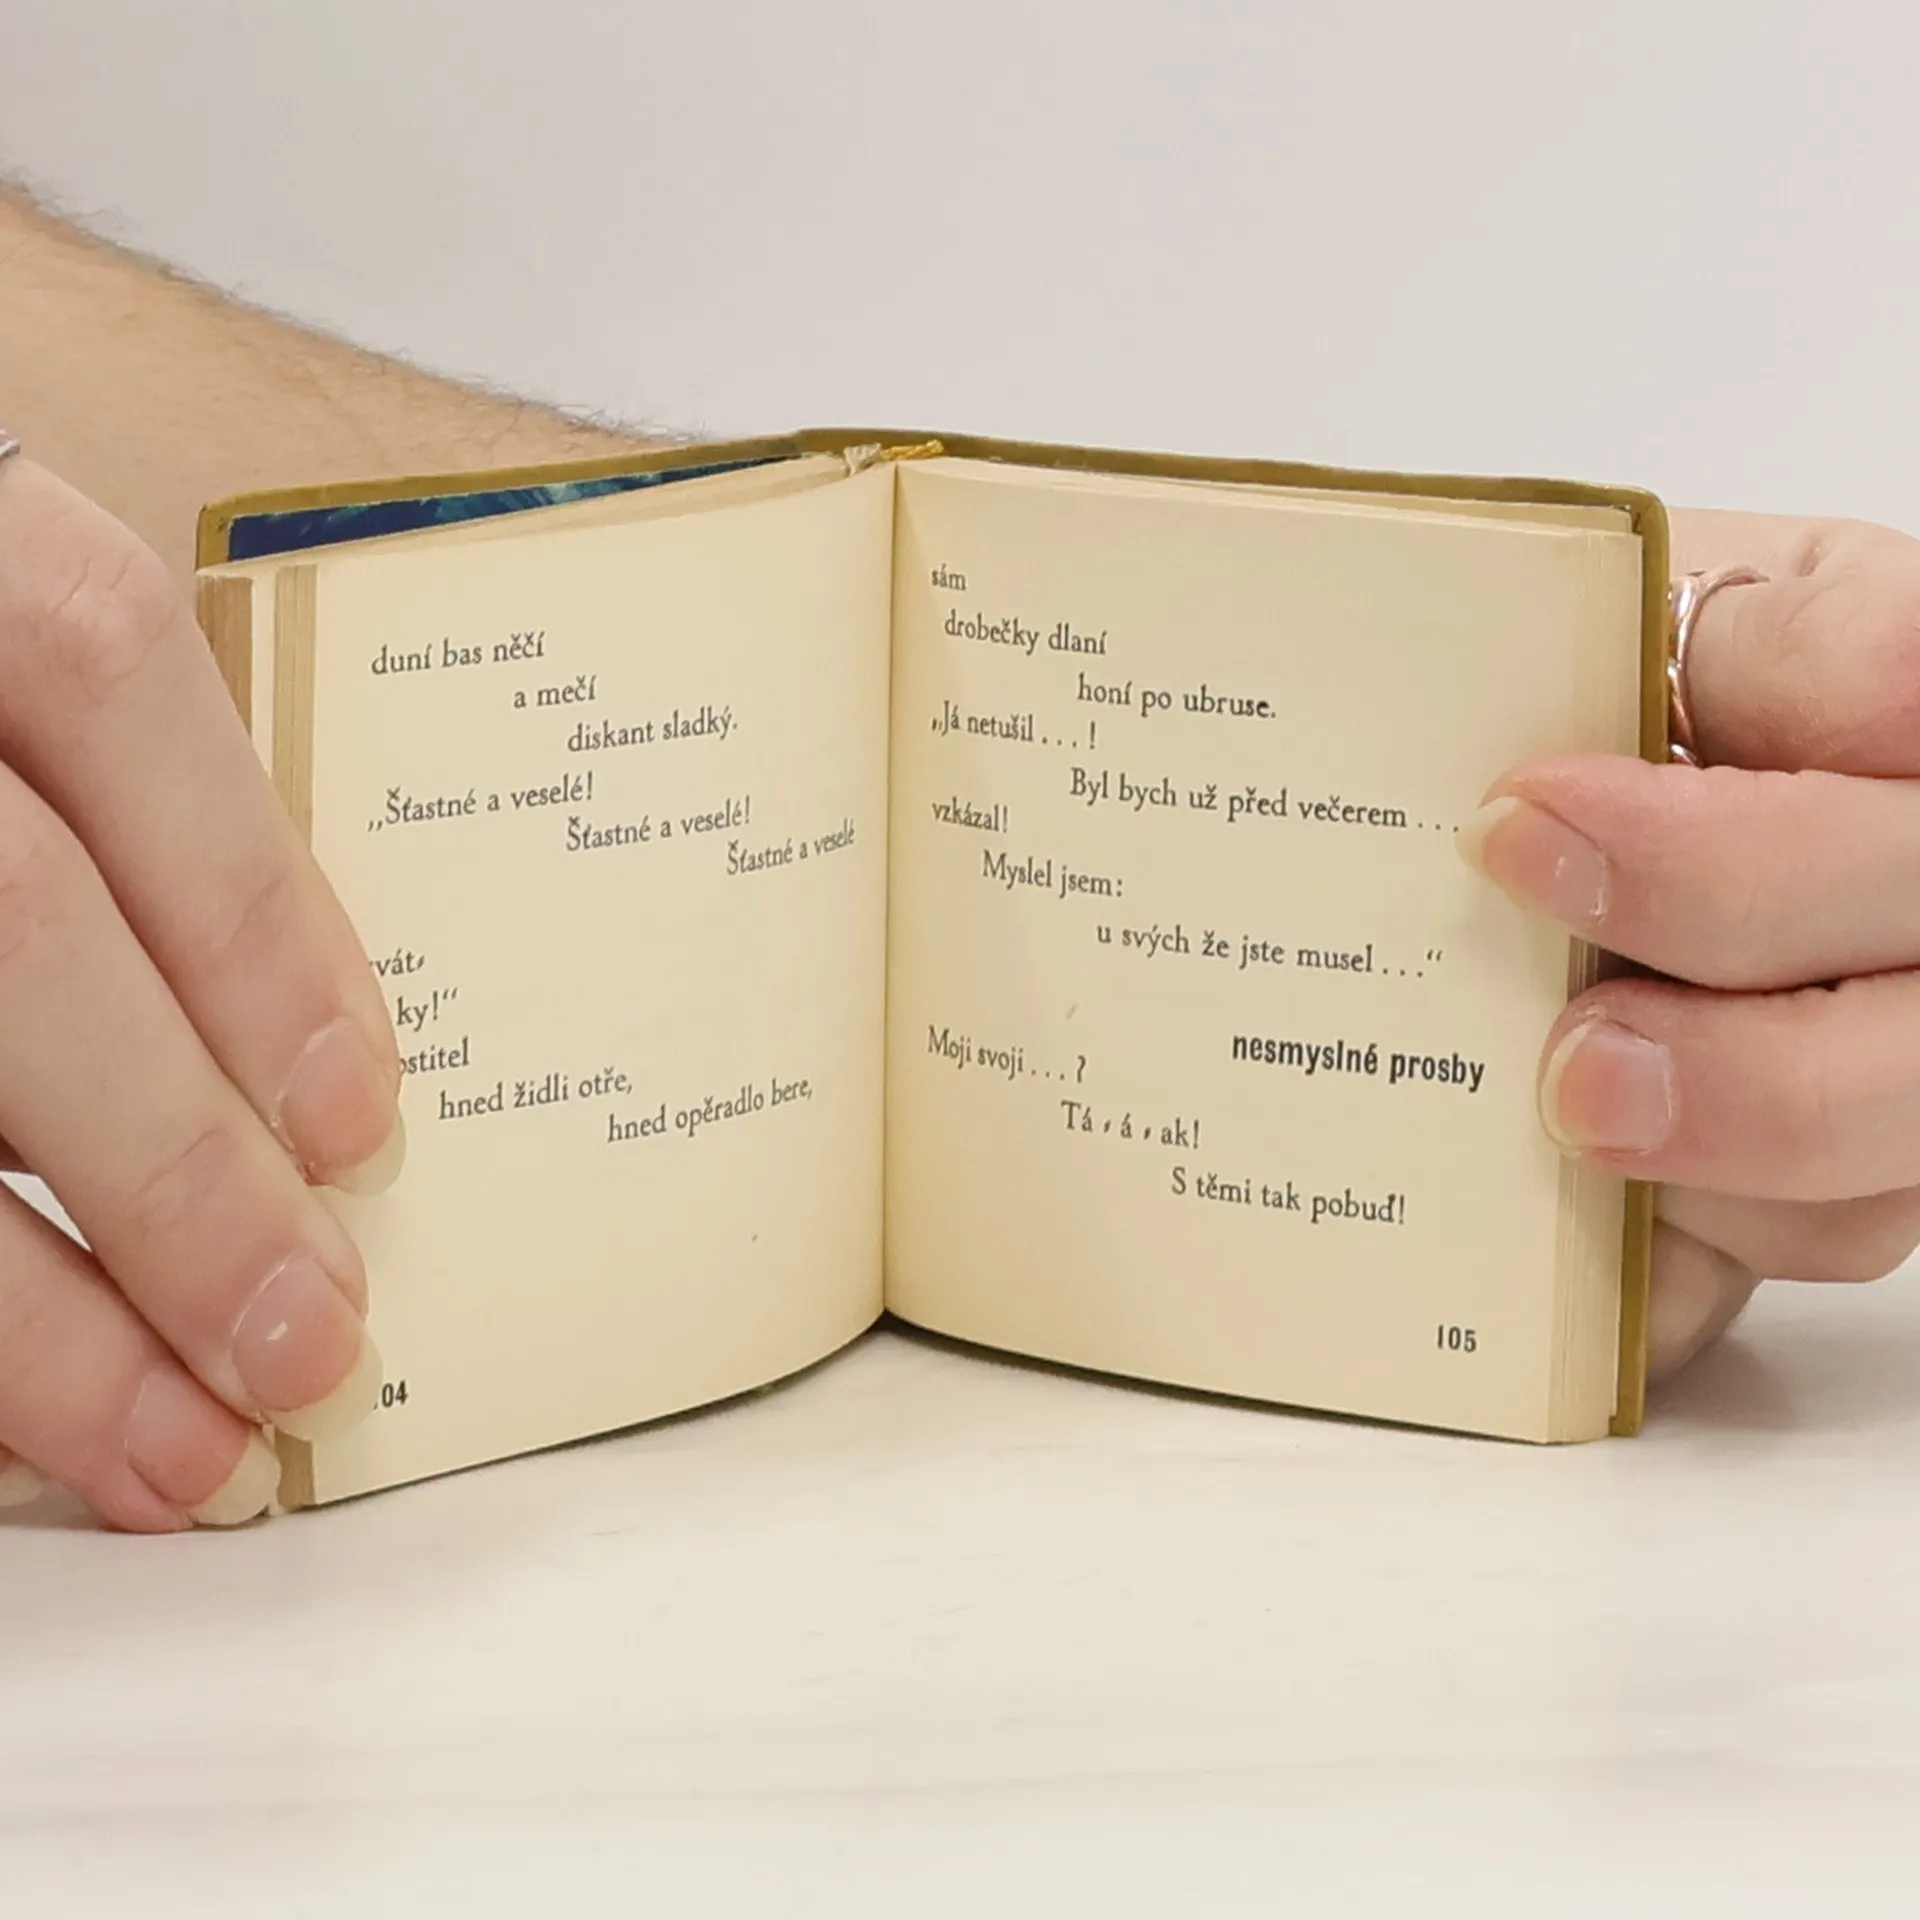 duní bas něčí
a mečí
diskant sladký.
„Šťastné a veselé!
Šťastné a veselé!
Šťastné a veselé
ky!“
hned židli otře,
hned opěradlo bere,
04
sám
drobečky dlaní
honí po ubruse.
„Já netušil . . . !
Byl bych už před večerem . . .
vzkázal!
Myslel jsem:
u svých že jste musel . . .“
nesmyslné prosby
Moji svoji . . . ?
Tá - á - ak!
S těmi tak pobuď!
105